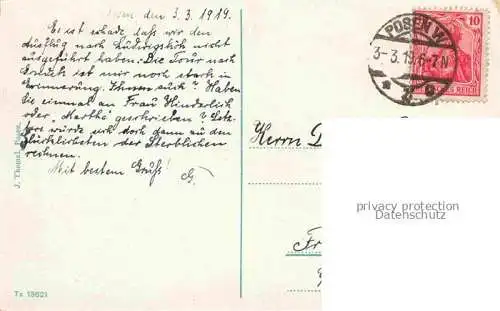 Posen den 3.3.1919.
Es ist schade, daß wir den
Ausflug nach Ludwigshöh nicht
ausgeführt haben. Die Tour nach
ist mir noch stark in
Erinnerung. Ihnen auch? Haben
Sie einmal an Frau Hinderlich
oder Martha geschrieben? Letz-
tere würde sich doch dann zu den
Glücklichsten der Sterblichen
rechnen.
Mit bestem Gruß!
G.
J. Themal, Posen.
Tx 13621
POSEN W.
3-3.19.6-7N
10
REICH
Herrn D
Fr
privacy protection
Datenschutz